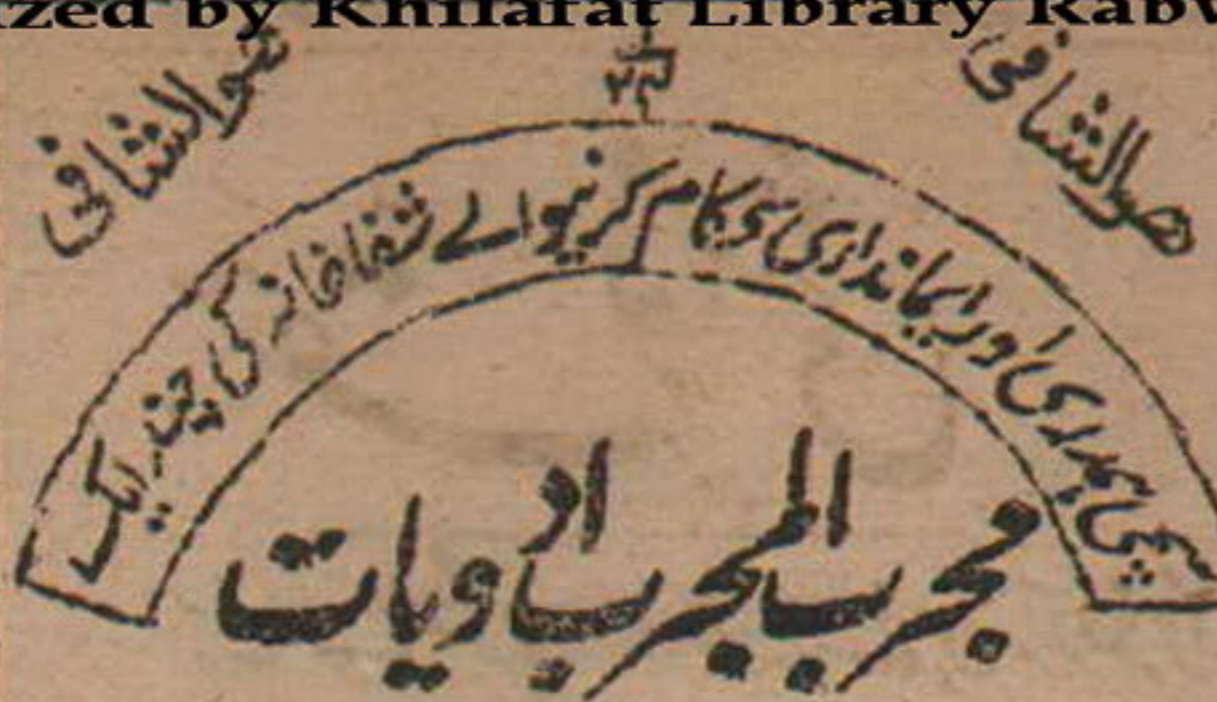 ized by Khilafat Library Rabw
ھوالشافی
ھوالشافی
۷۸۶
سچی ہمدردی اور ایمانداری سی کام کرنیوالے شفاخانہ کی چند ایک
مجرب المجرب ادویات